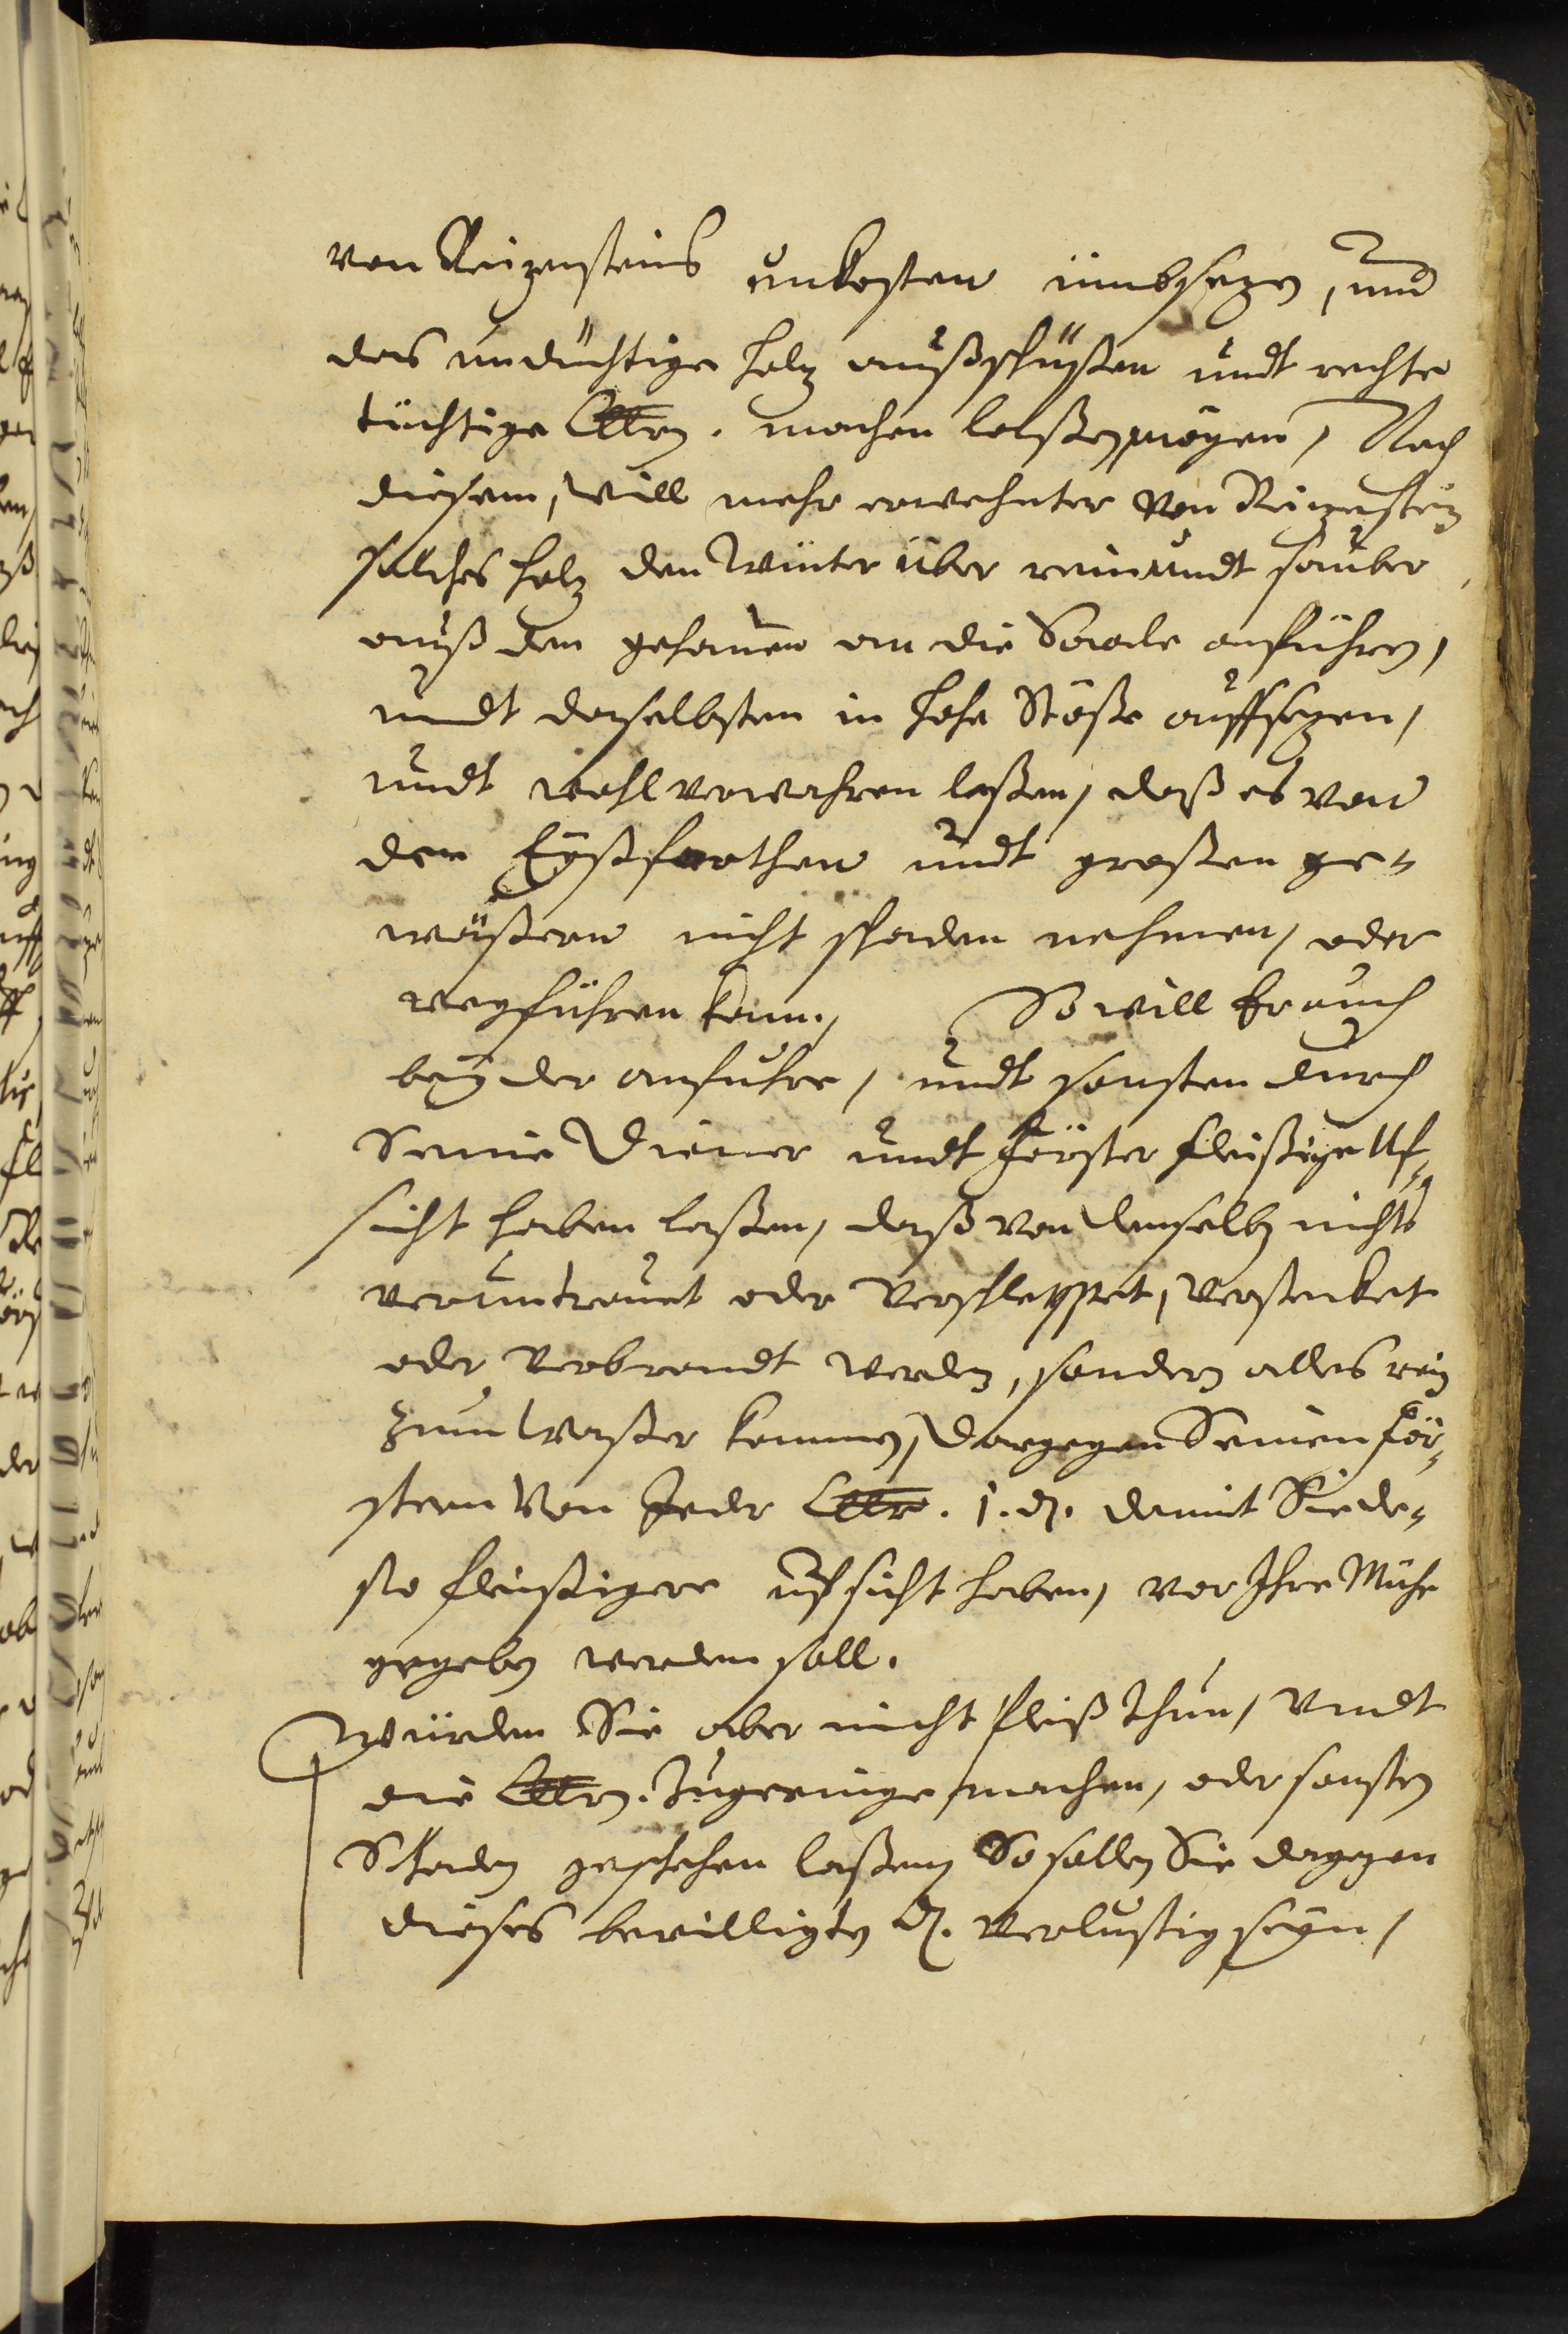 von Reizensteins unkosten ümbsezen, und
das undüchtige holz außschüßen undt rechte
tüchtige Cllrn. machen laßen mögen, Nach
diesem, will mehr erwehnter von Reizenstein
solches holz den Winter über rein undt sauber
auß den gehauen an die Saale anführen,
undt daselbsten in hohe Stöße auffsezen,
undt wohl verwahren laßen, daß es von
den Eyßfarthen undt großen ge-
wäßern nicht schaden nehmen, oder
wegführen kann, So will Er auch
bey der anfuhre, undt sonsten durch
Seine Diener undt Förster fleißige Uf-
sicht haben laßen, daß von demselben nichts
veruntrauet oder Verschleppet, Versencket
oder Verbrandt werden, sondern alles rein
zum Waßer kommen, Dargegen Seinen För-
stern Von Jeder Cllr. 1. d. damit Sie de-
sto fleißigere ufsicht haben, vor Ihre Mühe
gegeben werden soll.
Würden Sie aber nicht fleiß thun, Undt
die Cllrn. zugeringe machen, oder sonsten
Schaden geschehen laßen, So sollen Sie dagegen
dieses bewilligten d. Verlustig seyn,